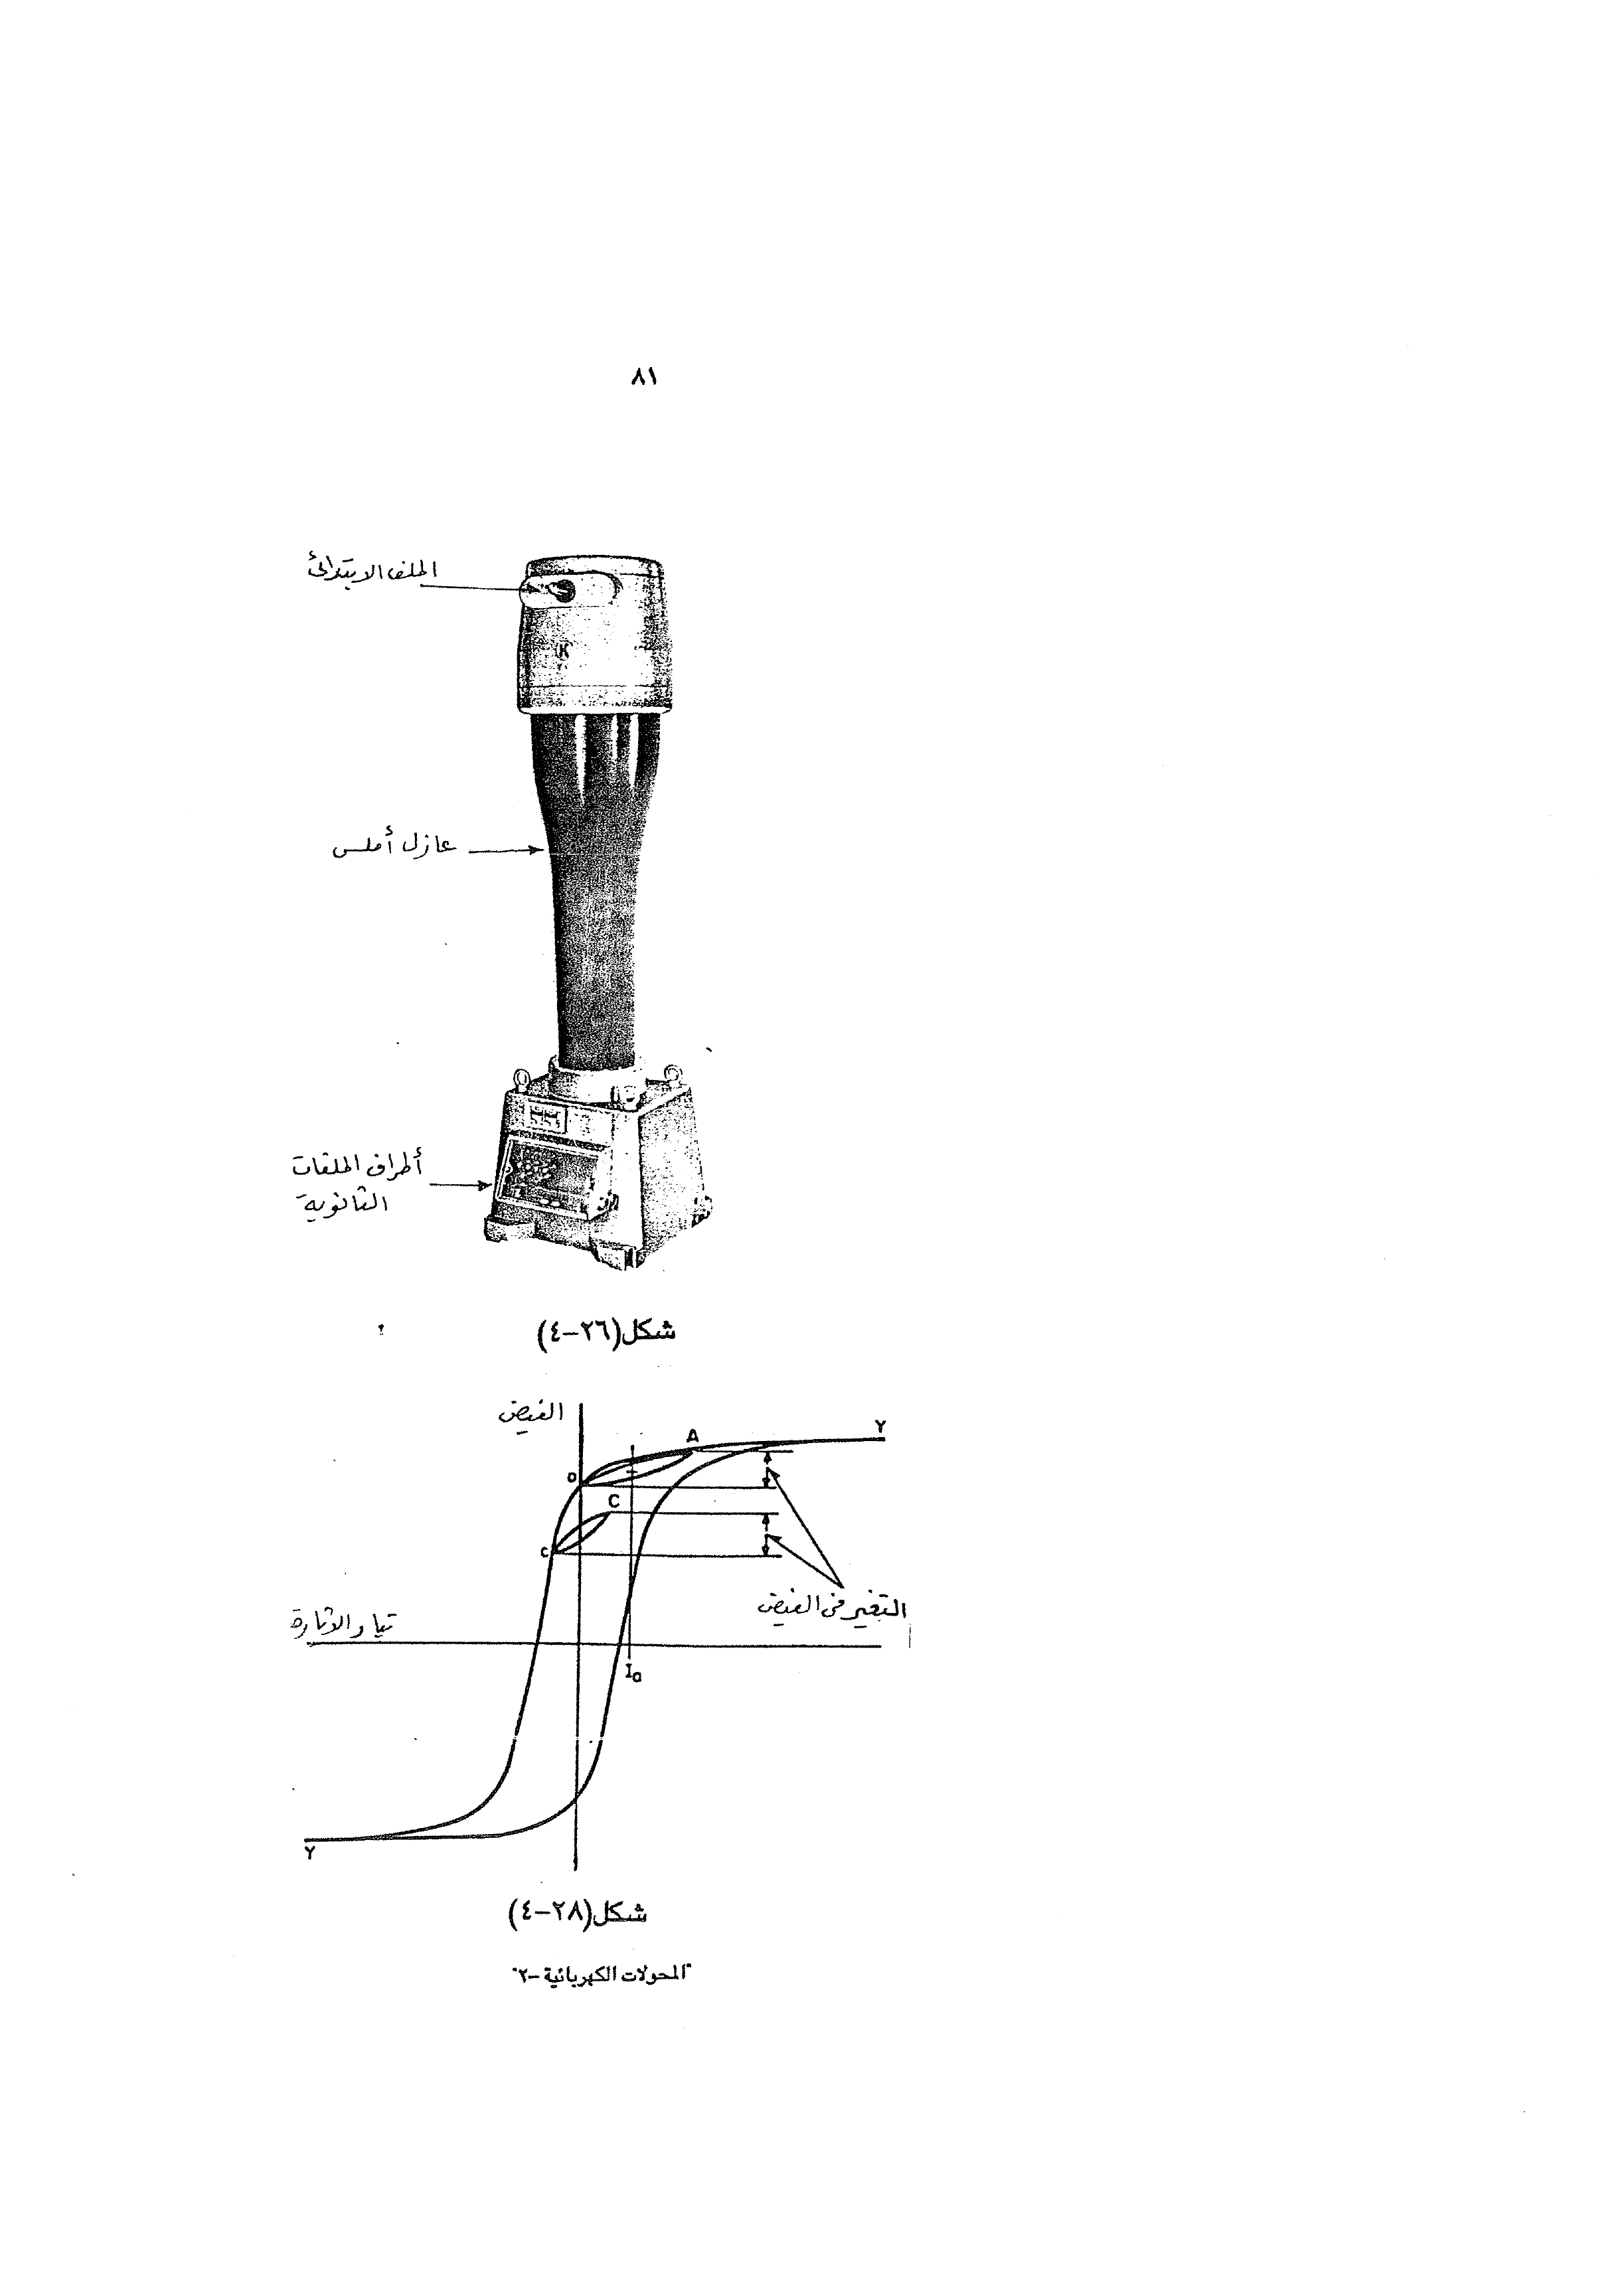 ٨١
الملف الابتدائى
K
عازل أملس
أطراف الملفات
الثانوية
شكل(٢٦-٤)
الفيض
Y
A
D
C
C
التغير فى الفيض
تيار الاثارة
Ia
Y
شكل(٢٨-٤)
"المحولات الكهربائية -٢"